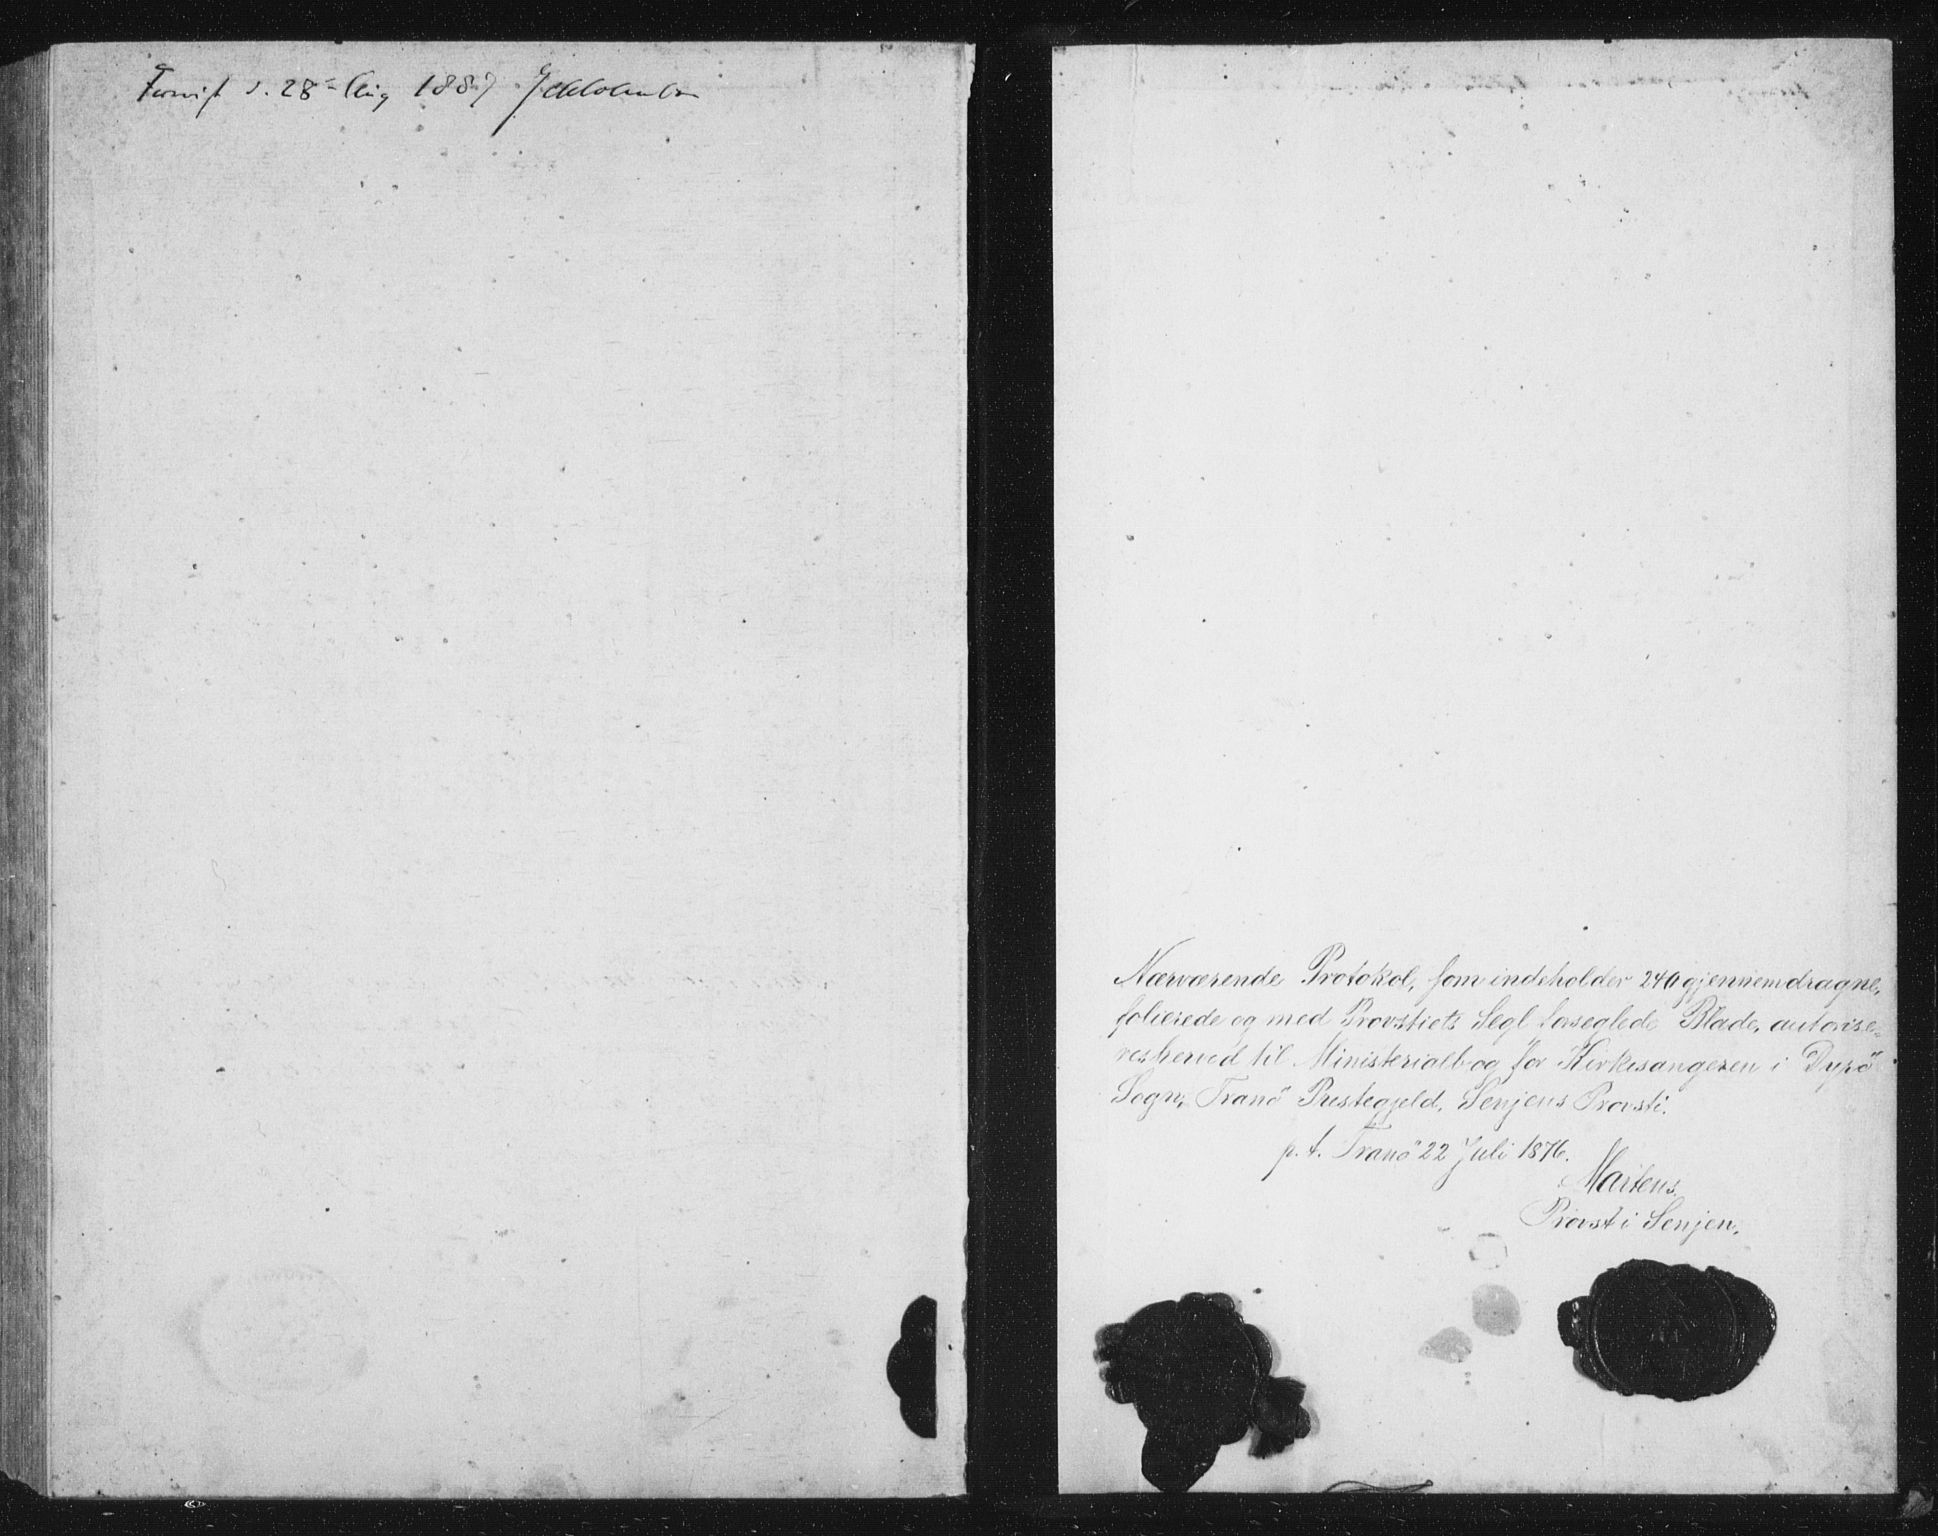 d. 28 Aug 1887
Nærværende Protokol, som indeholder 240 gjennemdragne,
folierede og med Provstiets Segl forseglede Blade, autorise-
res herved til Ministerialbog for Kirkesangeren i Dyrö
Sogn, Tranö Prestegjeld, Senjens Provsti.
p. t. Tranö 22 Juli 1876.
Provst i Senjen.